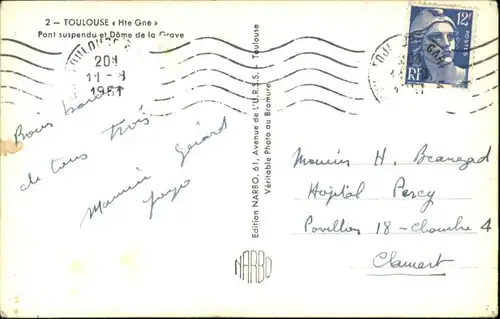 2 — TOULOUSE « Hte Gne »
Pont suspendu et Dôme de la Grave
TOULOUSE
20H
11 - 8
1951
12F
RF
POSTES
Bons baisers
de tous trois
Gérard
Edition NARBO, 61, Avenue de l'U.R.S.S. - Toulouse
Véritable Photo au Bromure
NARBO
Monsieur H. Beauregad
Hôpital Percy
Pavillon 18 - Chambre 4
Clamart